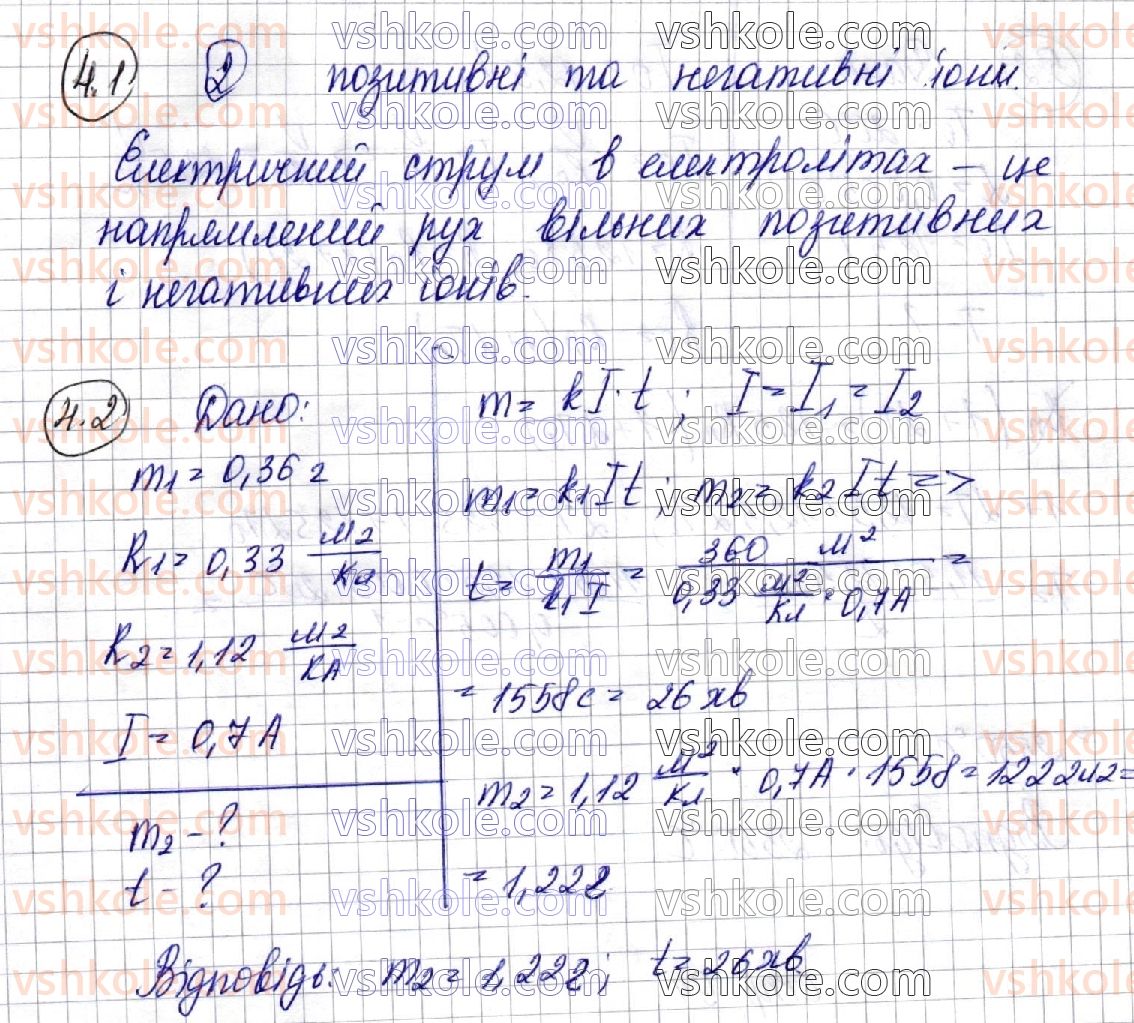 4.1 2 позитивні та негативні іони.
Електричний струм в електролітах – це
напрямлений рух вільних позитивних
і негативних іонів.
4.2 Дано:
m₁ = 0,36 г
k₁ = 0,33 мг/Кл
k₂ = 1,12 мг/Кл
I = 0,7 А
m₂ - ?
t - ?
m = kI·t ; I = I₁ = I₂
m₁ = k₁It ; m₂ = k₂It =>
t = m₁/(k₁I) = 360 мг/(0,33 мг/Кл · 0,7А) =
= 1558с = 26 хв
m₂ = 1,12 мг/Кл · 0,7А · 1558 = 1222мг =
= 1,22г
Відповідь: m₂ = 1,22г; t = 26 хв
vshkole.com